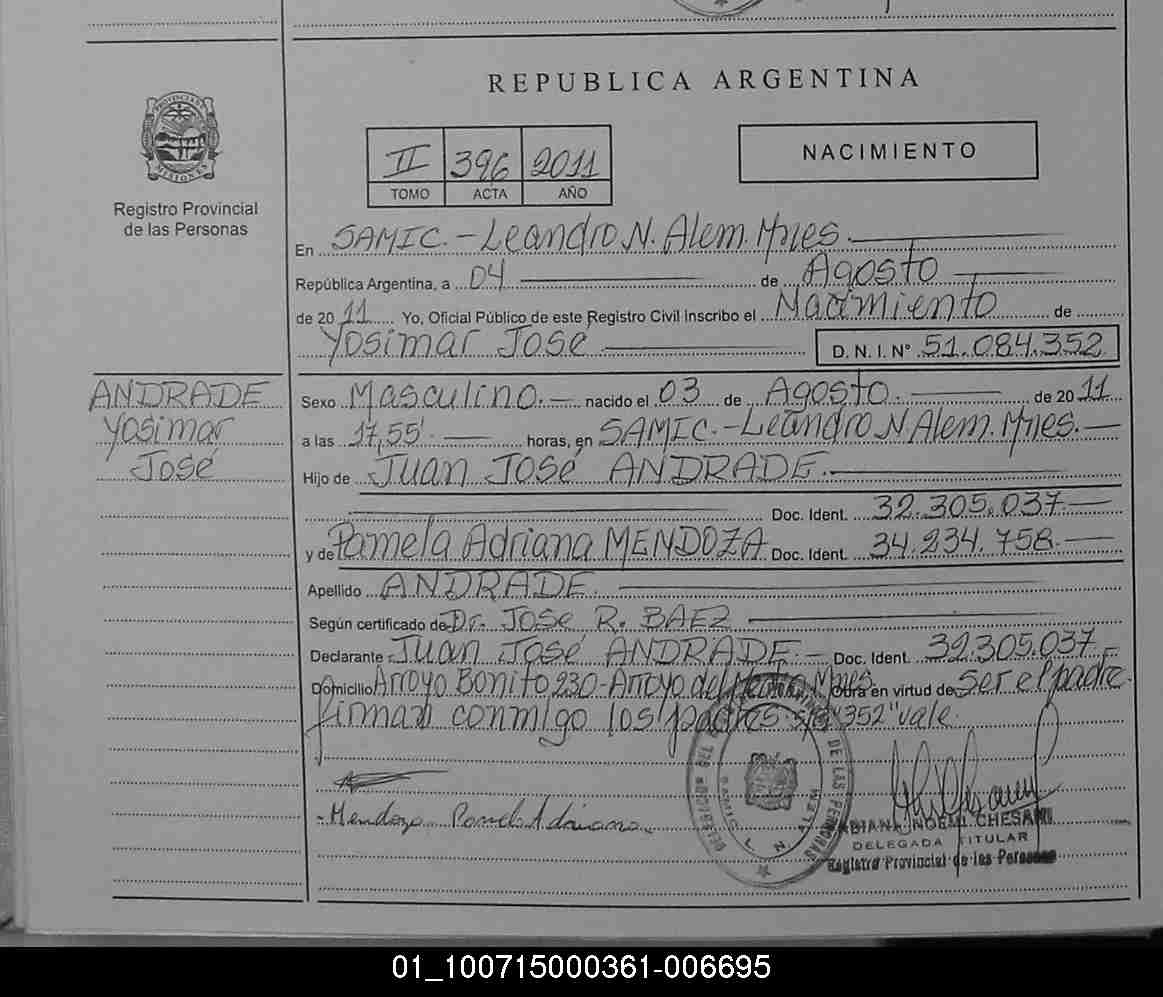 REPUBLICA ARGENTINA
PROVINCIA DE MISIONES
Registro Provincial
de las Personas
II 396 2011
TOMO ACTA AÑO
NACIMIENTO
En SAMIC.-Leandro N. Alem. Mnes.
República Argentina, a 04 de Agosto
de 2011 Yo, Oficial Público de este Registro Civil Inscribo el Nacimiento de
Yosimar José
D.N.I. Nº 51.084.352
ANDRADE
Yosimar
José
Sexo Masculino.- nacido el 03 de Agosto. de 2011
a las 17,55' horas, en SAMIC.-Leandro N Alem. Mnes.-
Hijo de Juan José ANDRADE.
Doc. Ident. 32.305.037.-
y de Pamela Adriana MENDOZA Doc. Ident. 34.234.758.-
Apellido ANDRADE.
Según certificado de Dr. JOSE R. BAEZ
Declarante Juan José ANDRADE.- Doc. Ident. 32.305.037.-
Domicilio Arroyo Bonito 230-Arroyo del Medio Mnes. Obra en virtud de Ser el padre.
firman conmigo los padres. s/r "352" vale.
Mendoza Pamela Adriana
FABIANA NOEMI CHESANI
DELEGADA TITULAR
Registro Provincial de las Personas
01_100715000361-006695